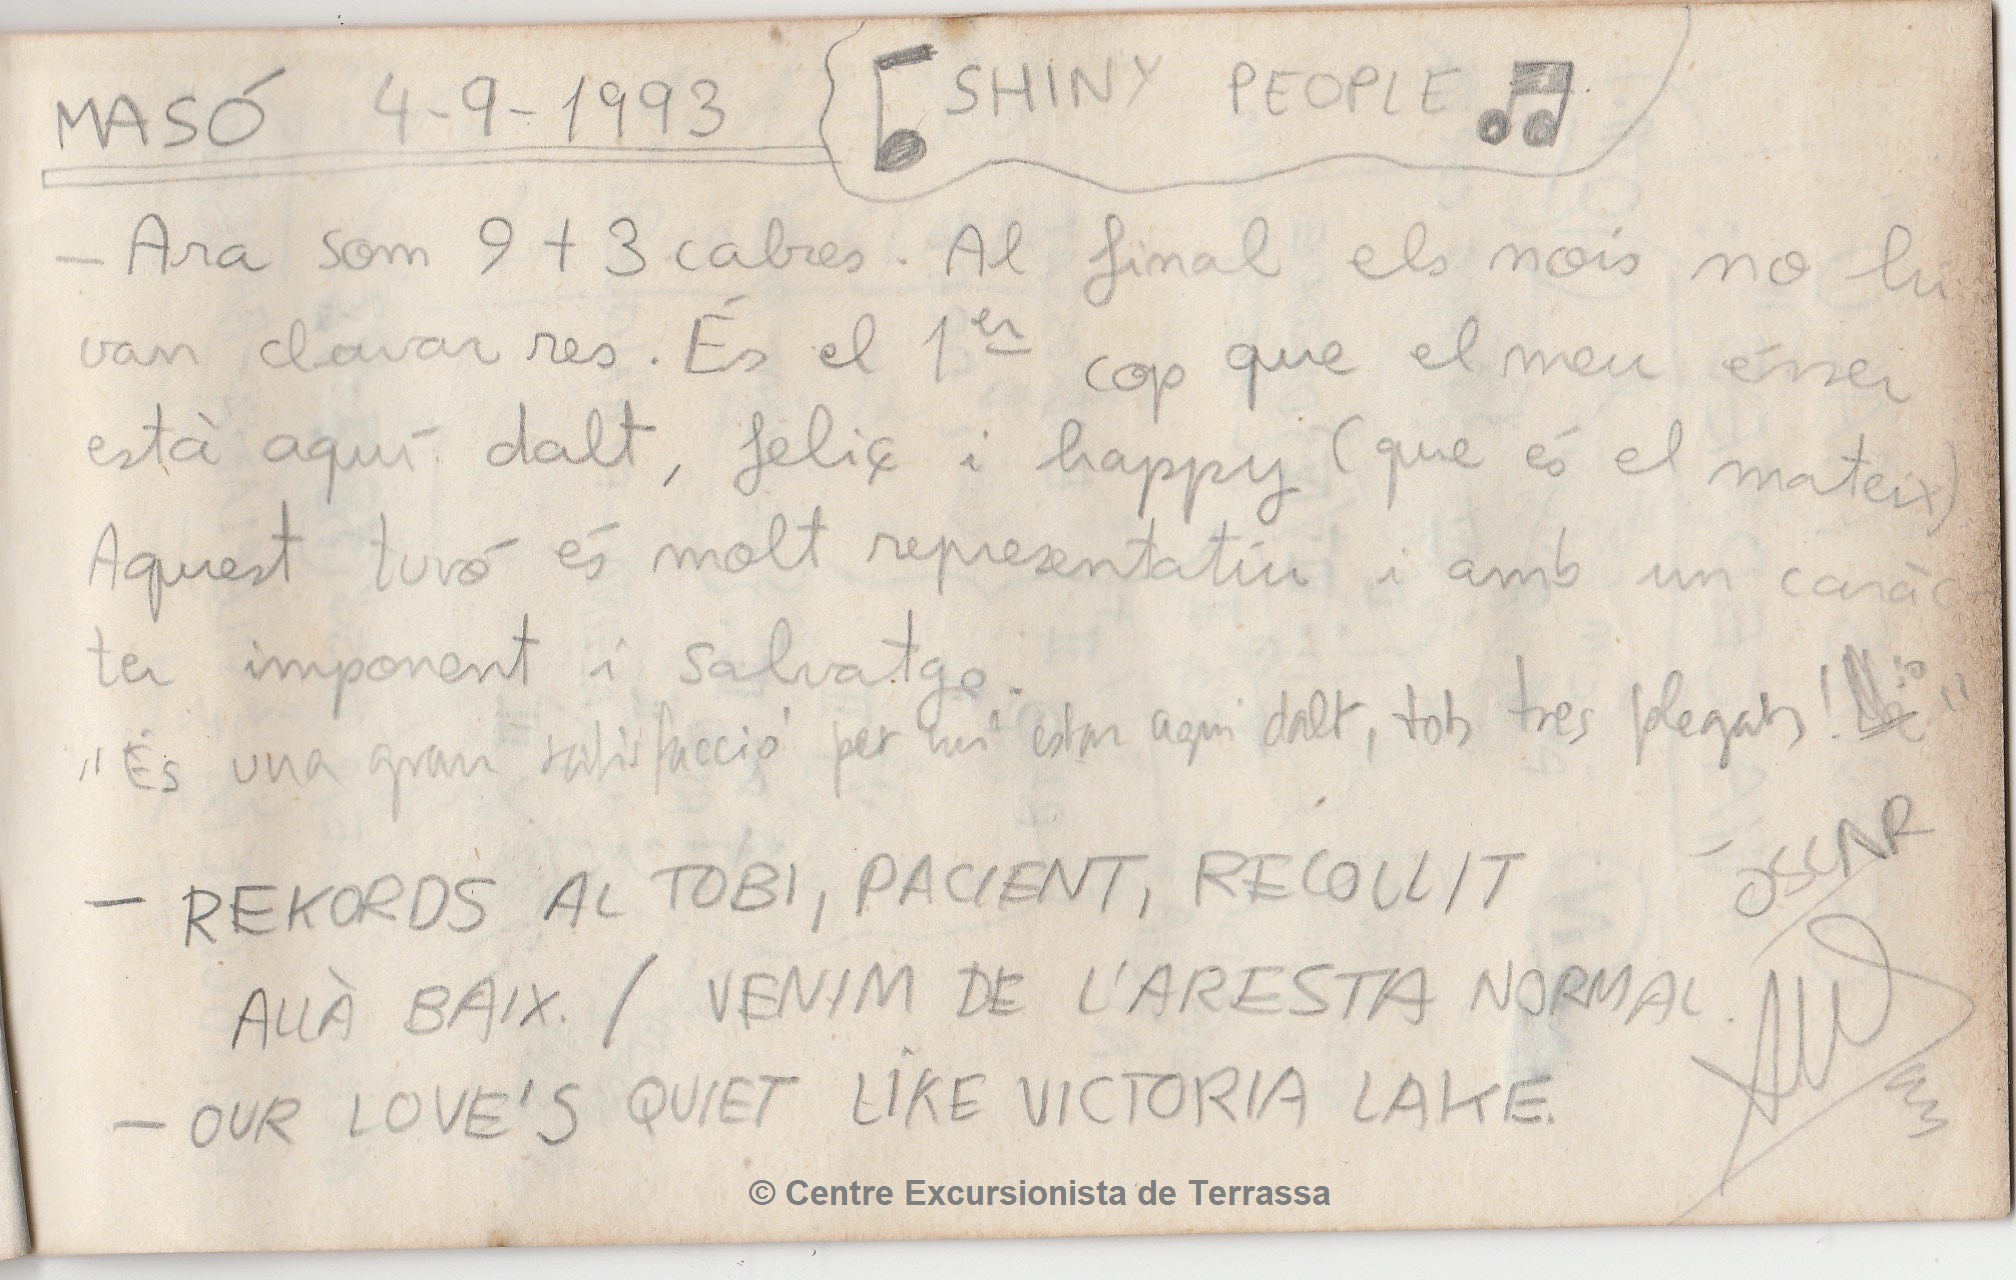 MASÓ 4-9-1993 SHINY PEOPLE
- Ara som 9 + 3 cabres. Al final els nois no hi
van clavar res. És el 1er cop que el meu ésser
està aquí dalt, feliç i happy (que és el mateix)
Aquest turó és molt representatiu i amb un caràc
ter imponent i salvatge.
"És una gran satisfacció per mi estar aqui dalt, tots tres plegats!"
ÒSCAR
- REKORDS AL TOBI, PACIENT, RECOLLIT
ALLÀ BAIX. / VENIM DE L'ARESTA NORMAL.
- OUR LOVE'S QUIET LIKE VICTORIA LAKE.
© Centre Excursionista de Terrassa